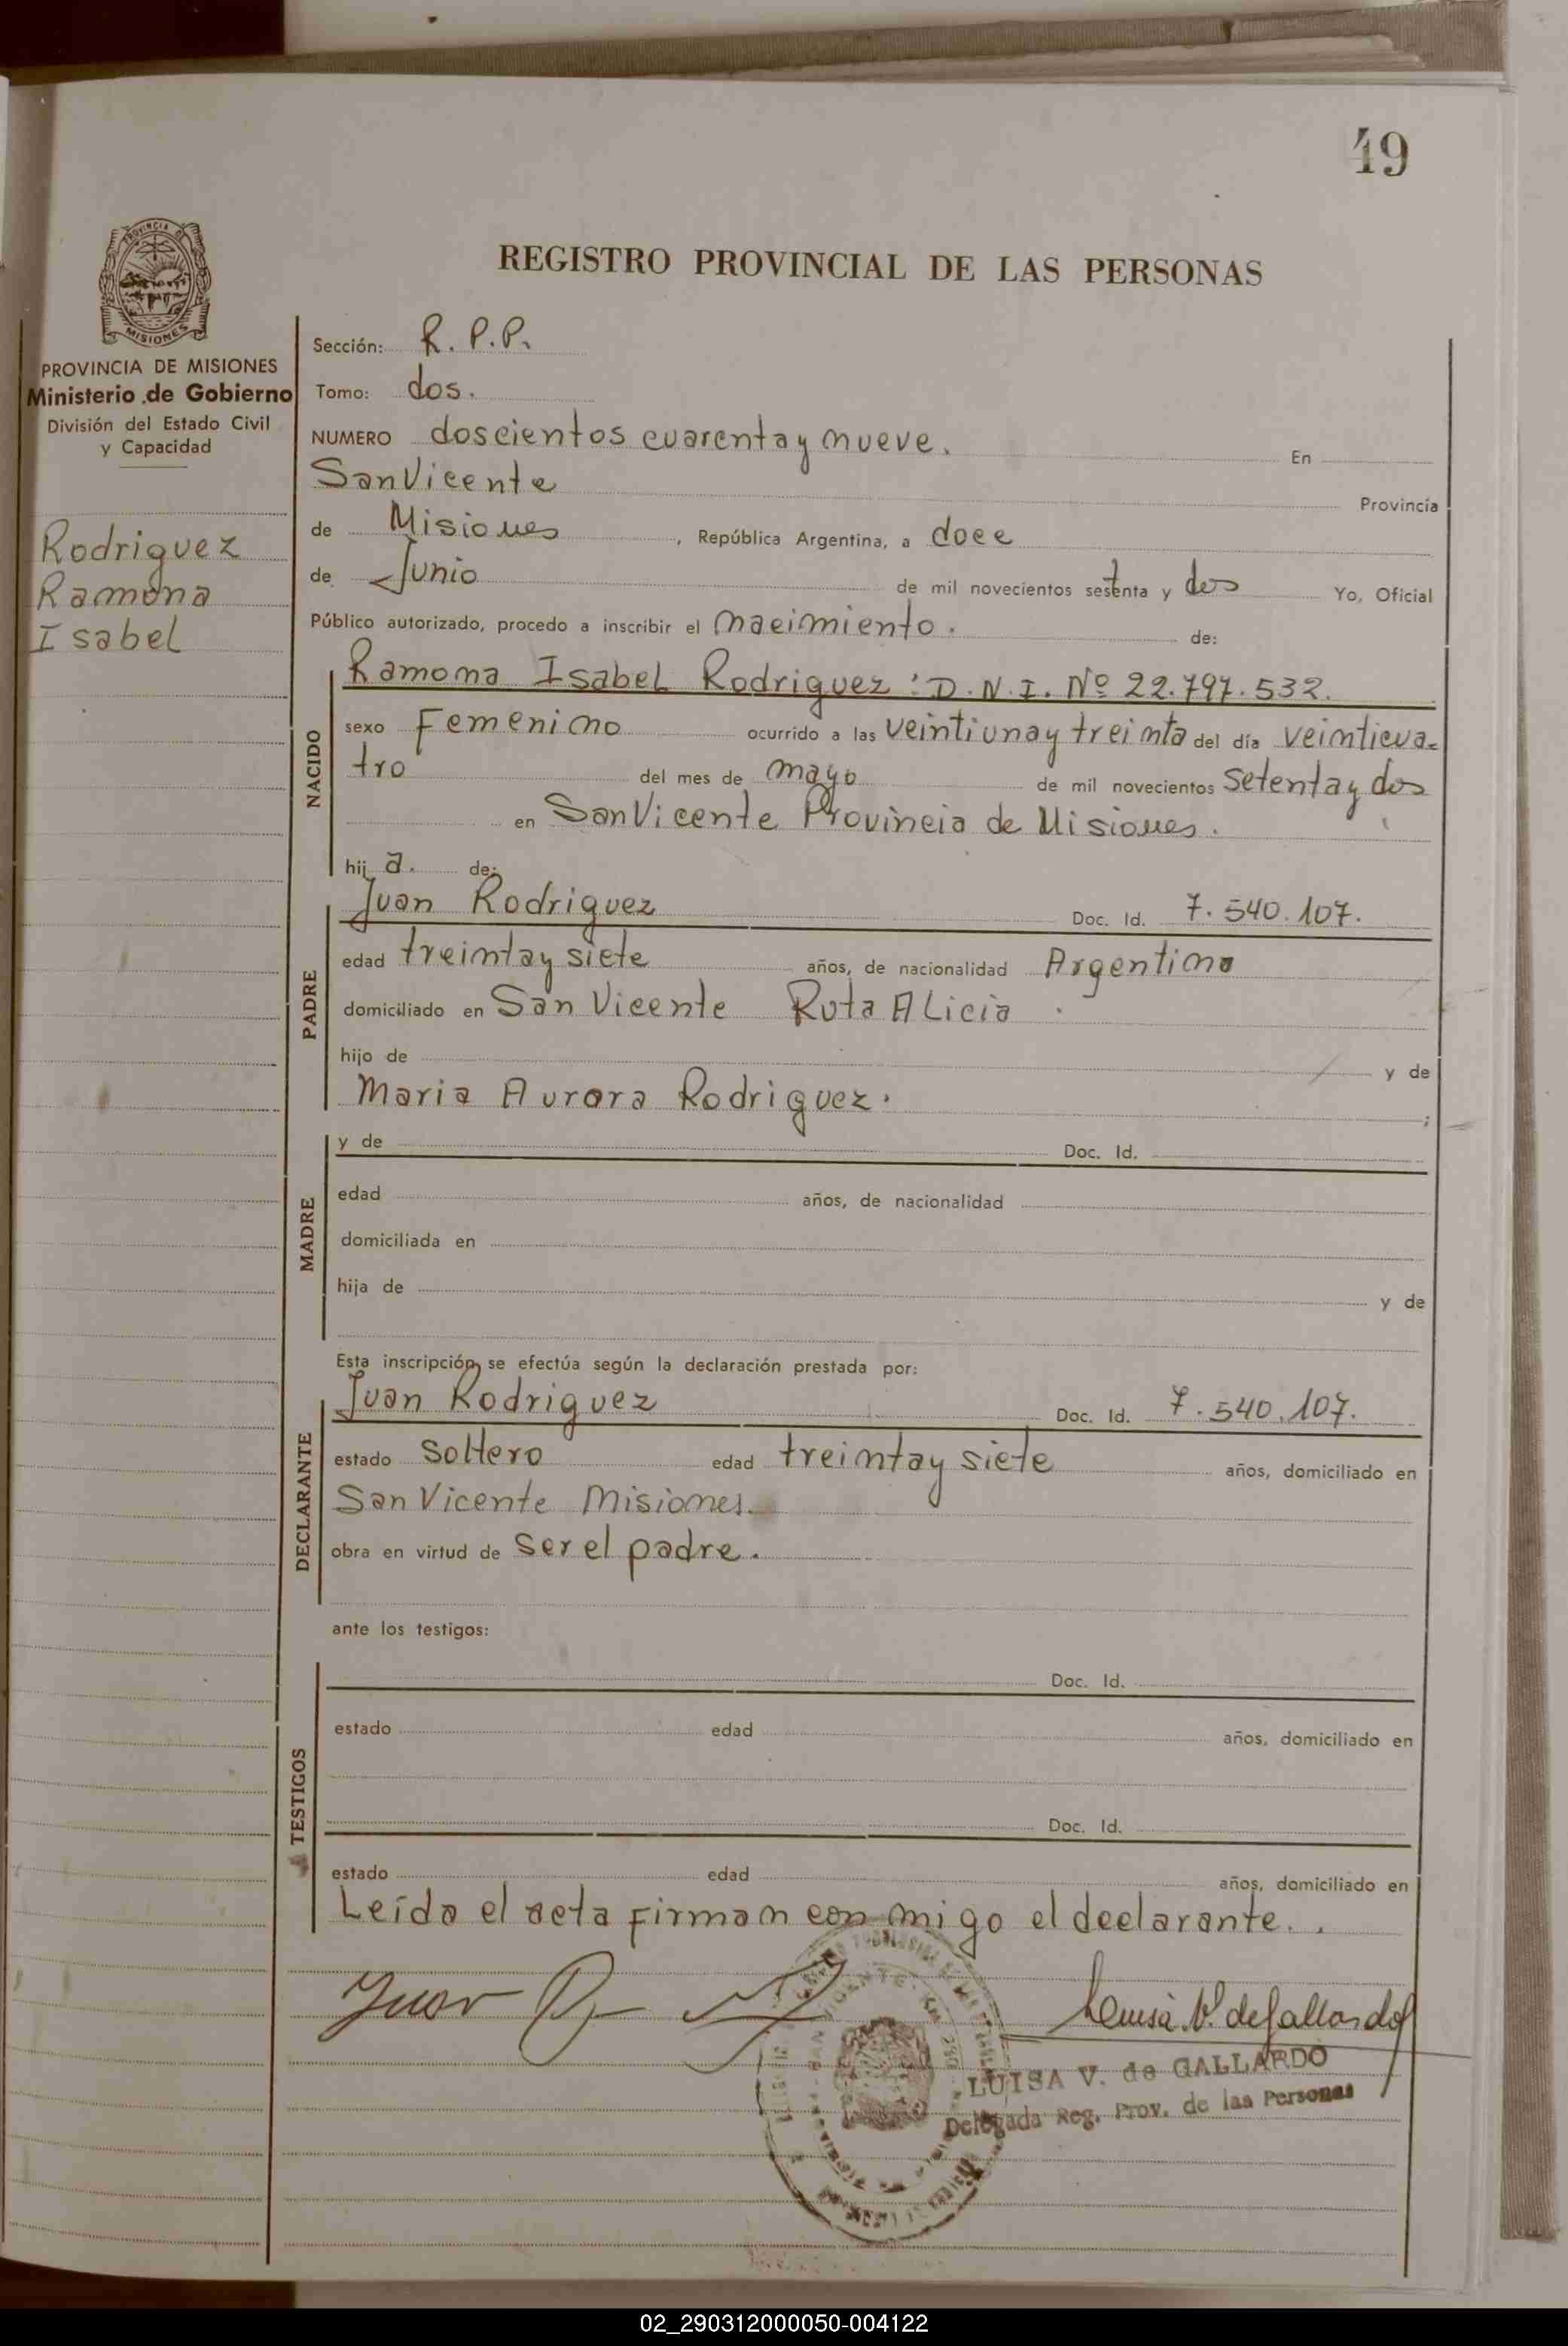 49
REGISTRO PROVINCIAL DE LAS PERSONAS
PROVINCIA DE
MISIONES
PROVINCIA DE MISIONES
Ministerio de Gobierno
División del Estado Civil
y Capacidad
Rodriguez
Ramona
Isabel
Sección: R.P.P.
Tomo: dos.
NUMERO doscientos cuarenta y nueve. En
San Vicente Provincia
de Misiones, República Argentina, a doce
de Junio de mil novecientos setenta y dos Yo, Oficial
Público autorizado, procedo a inscribir el nacimiento. de:
NACIDO
Ramona Isabel Rodriguez: D.N.I. Nº 22.797.532.
sexo Femenino ocurrido a las veintiuna y treinta del día veinticua=
tro del mes de mayo de mil novecientos setenta y dos
en San Vicente Provincia de Misiones.
hij a. de:
PADRE
Juan Rodriguez Doc. Id. 7.540.107.
edad treinta y siete años, de nacionalidad Argentino
domiciliado en San Vicente Ruta Alicia
hijo de y de
Maria Aurora Rodriguez. ;
MADRE
y de Doc. Id.
edad años, de nacionalidad
domiciliada en
hija de y de
Esta inscripción se efectúa según la declaración prestada por:
DECLARANTE
Juan Rodriguez Doc. Id. 7.540.107.
estado Soltero edad treinta y siete años, domiciliado en
San Vicente Misiones.
obra en virtud de ser el padre.
ante los testigos:
TESTIGOS
Doc. Id.
estado edad años, domiciliado en
Doc. Id.
estado edad años, domiciliado en
Leída el acta firman con migo el declarante..
Juan
Luisa V. de Gallardo
LUISA V. de GALLARDO
Delegada Reg. Prov. de las Personas
02_290312000050-004122